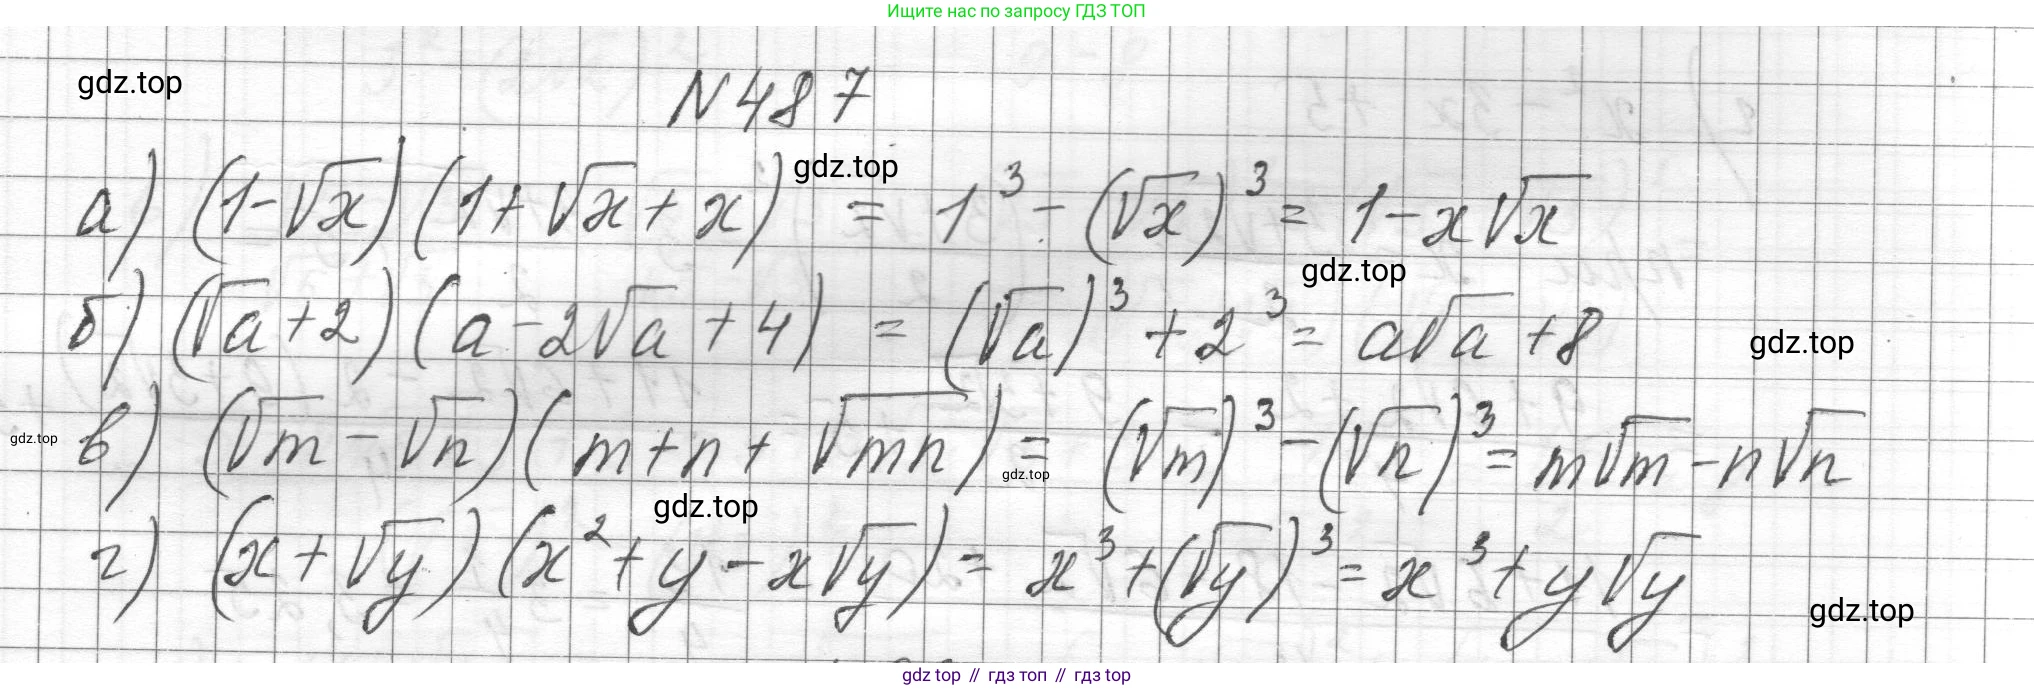 Ищите нас по запросу ГДЗ ТОП
gdz.top
N 487
gdz.top
а) (1-√x)(1+√x+x) = 1³-(√x)³ = 1-x√x
gdz.top
б) (√a+2)(a-2√a+4) = (√a)³+2³ = a√a+8
gdz.top
gdz.top
в) (√m-√n)(m+n+√mn) = (√m)³-(√n)³ = m√m-n√n
gdz.top
gdz.top
г) (x+√y)(x²+y-x√y) = x³+(√y)³ = x³+y√y
gdz.top
gdz top // гдз топ // гдз top